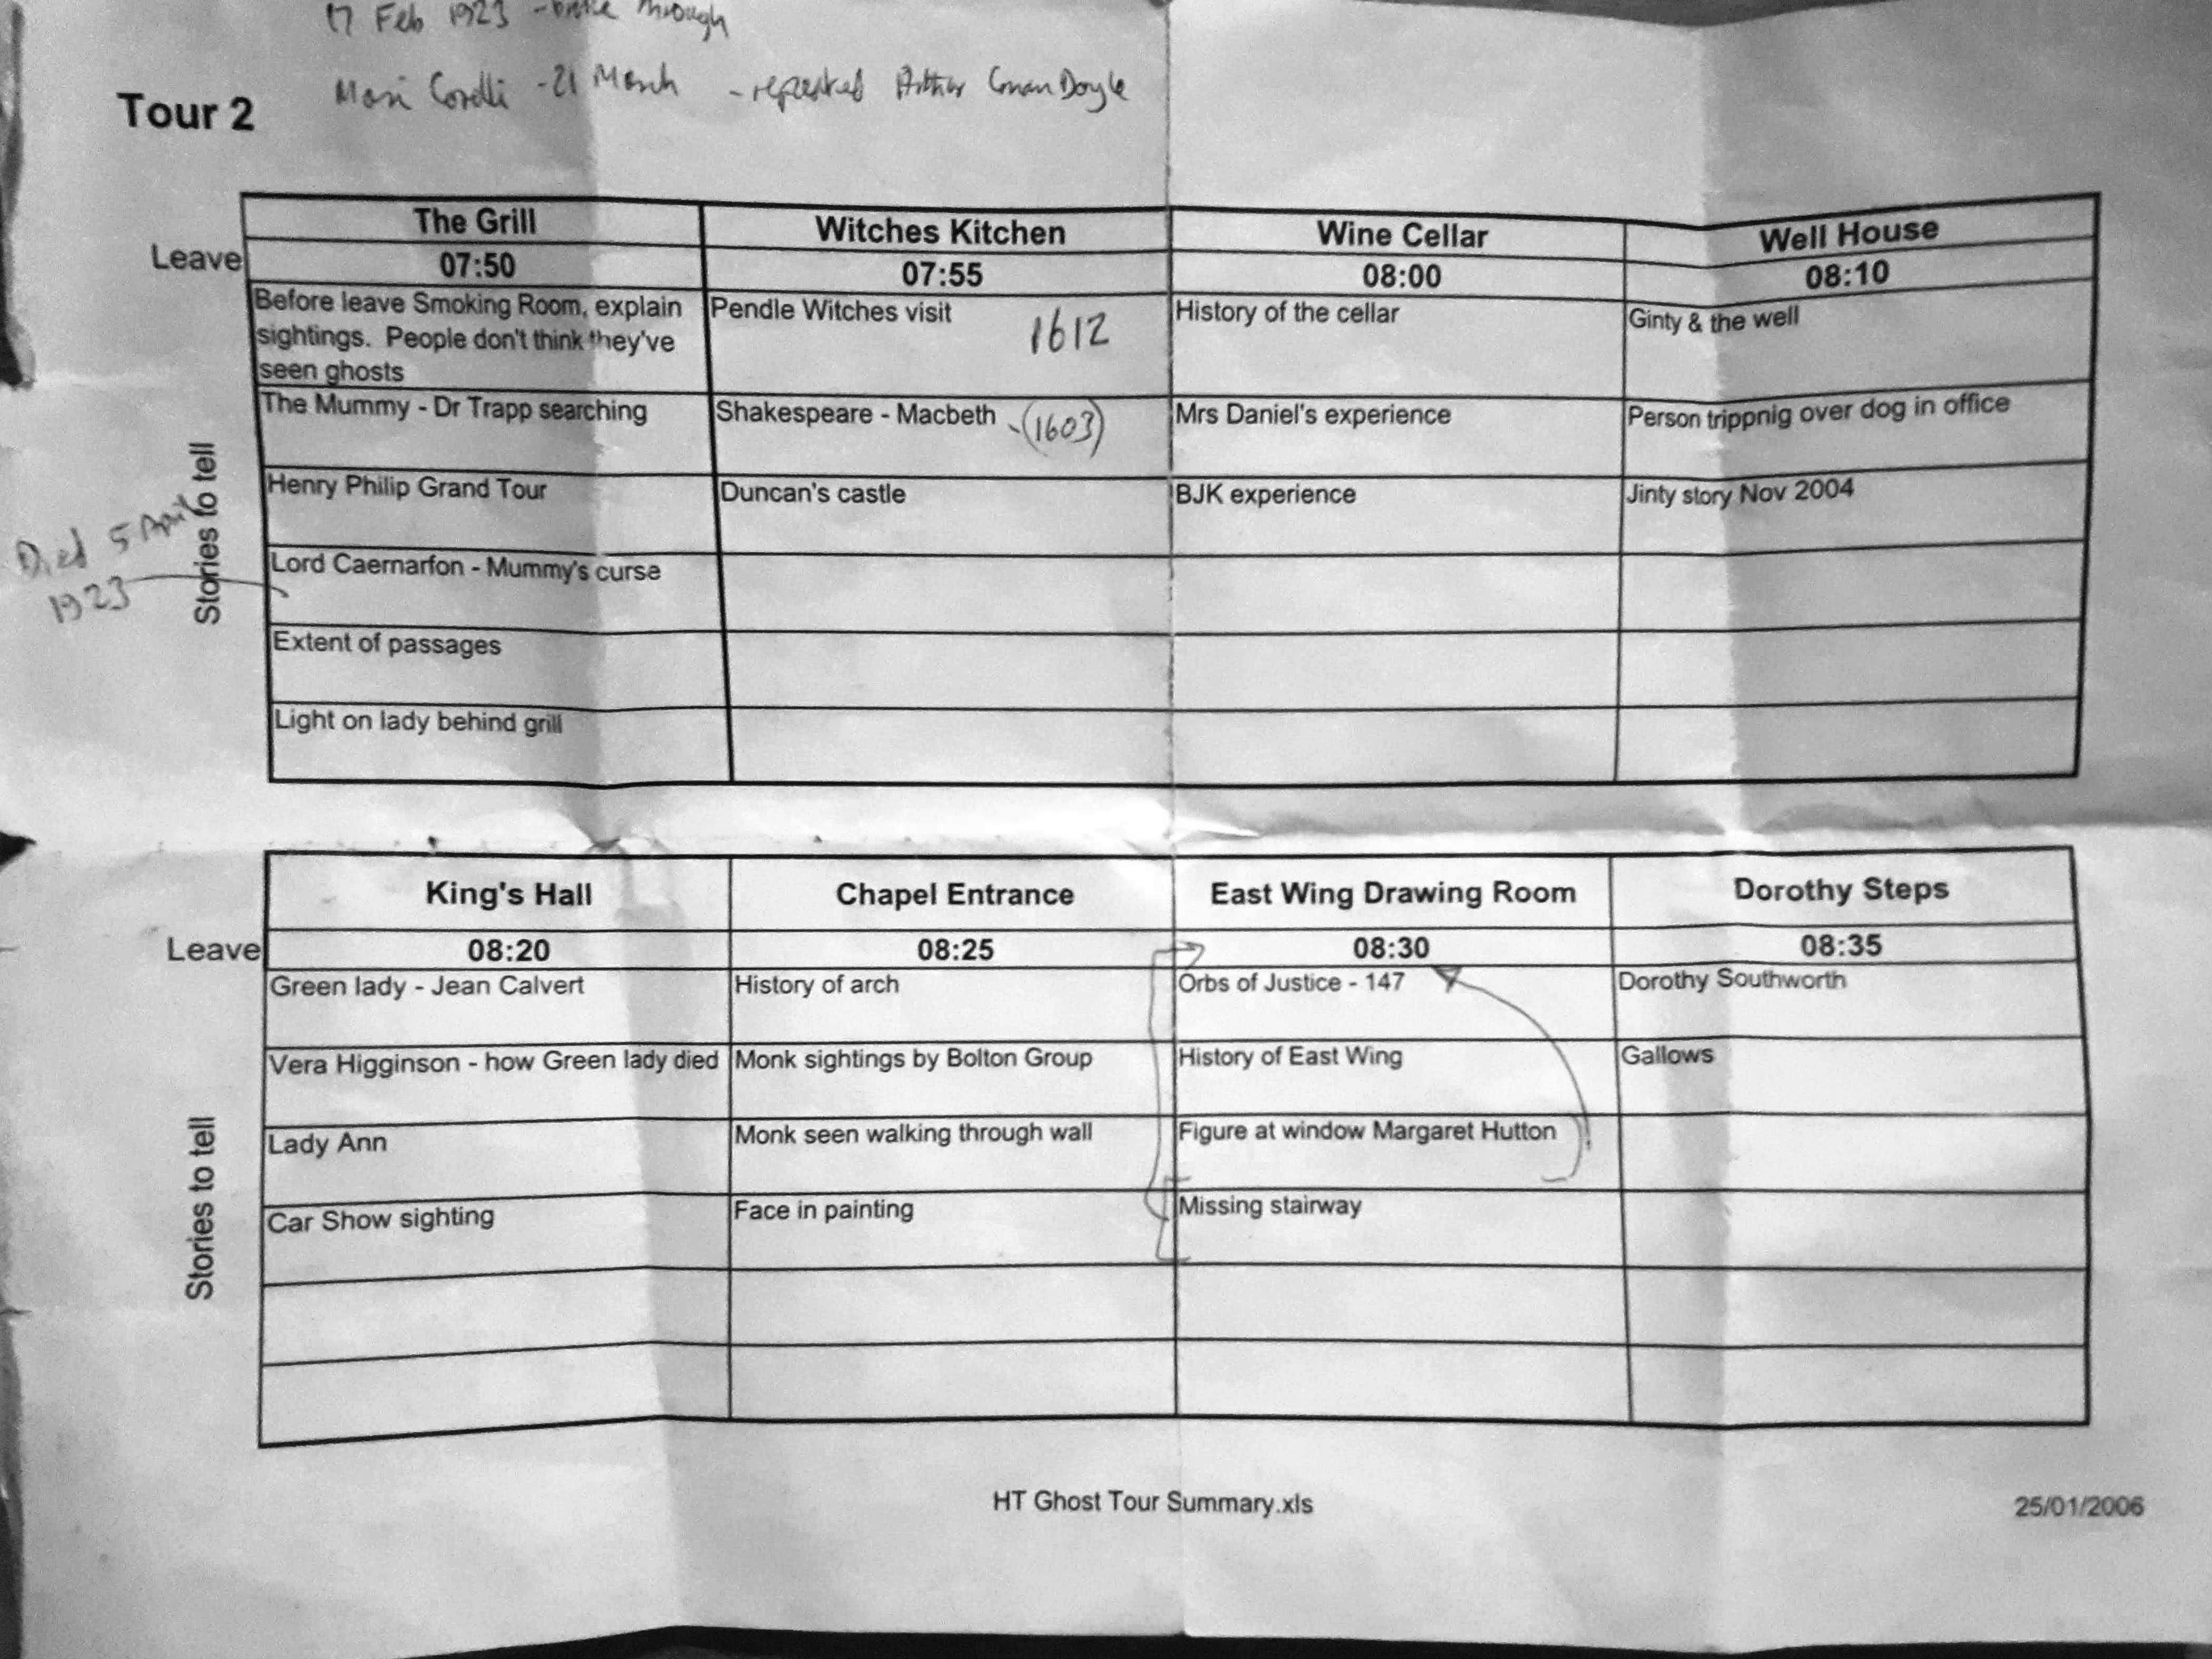 17 Feb 1923 - broke through
Mari Corelli - 21 March - repeated Arthur Conan Doyle
Tour 2
The Grill Witches Kitchen Wine Cellar Well House
Leave 07:50 07:55 08:00 08:10
Before leave Smoking Room, explain Pendle Witches visit 1612 History of the cellar Ginty & the well
sightings. People don't think they've
seen ghosts
The Mummy - Dr Trapp searching Shakespeare - Macbeth - (1603) Mrs Daniel's experience Person trippnig over dog in office
Stories to tell
Henry Philip Grand Tour Duncan's castle BJK experience Jinty story Nov 2004
Died 5 April
1923
Lord Caernarfon - Mummy's curse
Extent of passages
Light on lady behind grill
King's Hall Chapel Entrance East Wing Drawing Room Dorothy Steps
Leave 08:20 08:25 08:30 08:35
Green lady - Jean Calvert History of arch Orbs of Justice - 147 Dorothy Southworth
Vera Higginson - how Green lady died Monk sightings by Bolton Group History of East Wing Gallows
Stories to tell
Lady Ann Monk seen walking through wall Figure at window Margaret Hutton
Car Show sighting Face in painting Missing stairway
HT Ghost Tour Summary.xls 25/01/2006